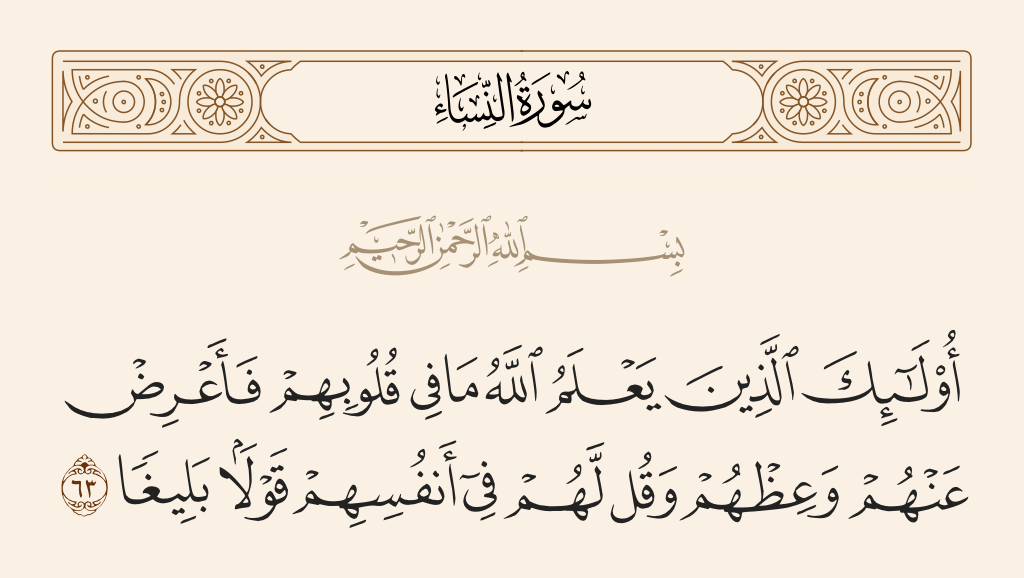 سُورَةُ النِّسَاءِ
بِسْمِ ٱللَّهِ ٱلرَّحْمَٰنِ ٱلرَّحِيمِ
أُو۟لَـٰٓئِكَ ٱلَّذِينَ يَعْلَمُ ٱللَّهُ مَا فِى قُلُوبِهِمْ فَأَعْرِضْ
عَنْهُمْ وَعِظْهُمْ وَقُل لَّهُمْ فِىٓ أَنفُسِهِمْ قَوْلًۢا بَلِيغًا ٦٣